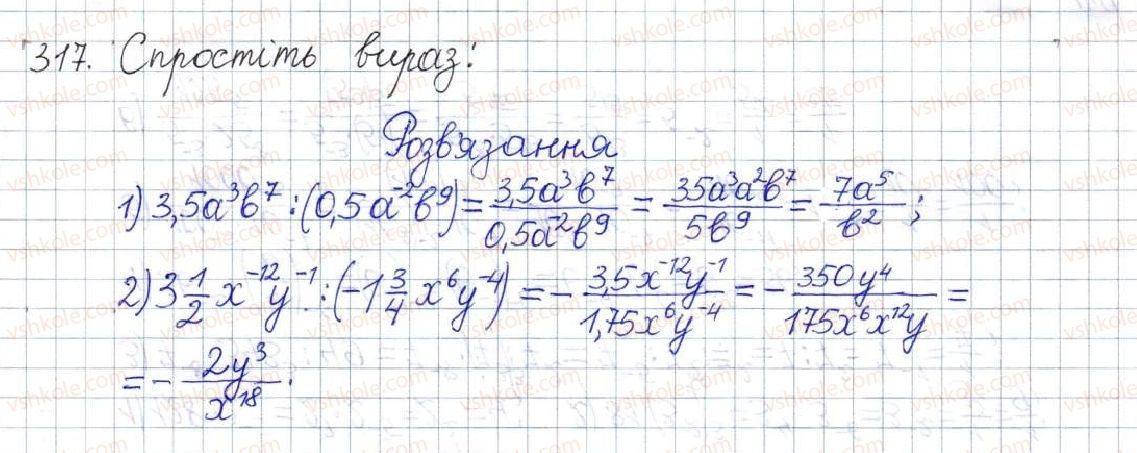 317. Спростіть вираз:
Розв'язання
1) 3,5a³b⁷ : (0,5a⁻²b⁹) = 3,5a³b⁷ / 0,5a⁻²b⁹ = 35a³a²b⁷ / 5b⁹ = 7a⁵ / b² ;
2) 3 1/2 x⁻¹²y⁻¹ : (-1 3/4 x⁶y⁻⁴) = - 3,5x⁻¹²y⁻¹ / 1,75x⁶y⁻⁴ = - 350y⁴ / 175x⁶x¹²y =
= - 2y³ / x¹⁸ .